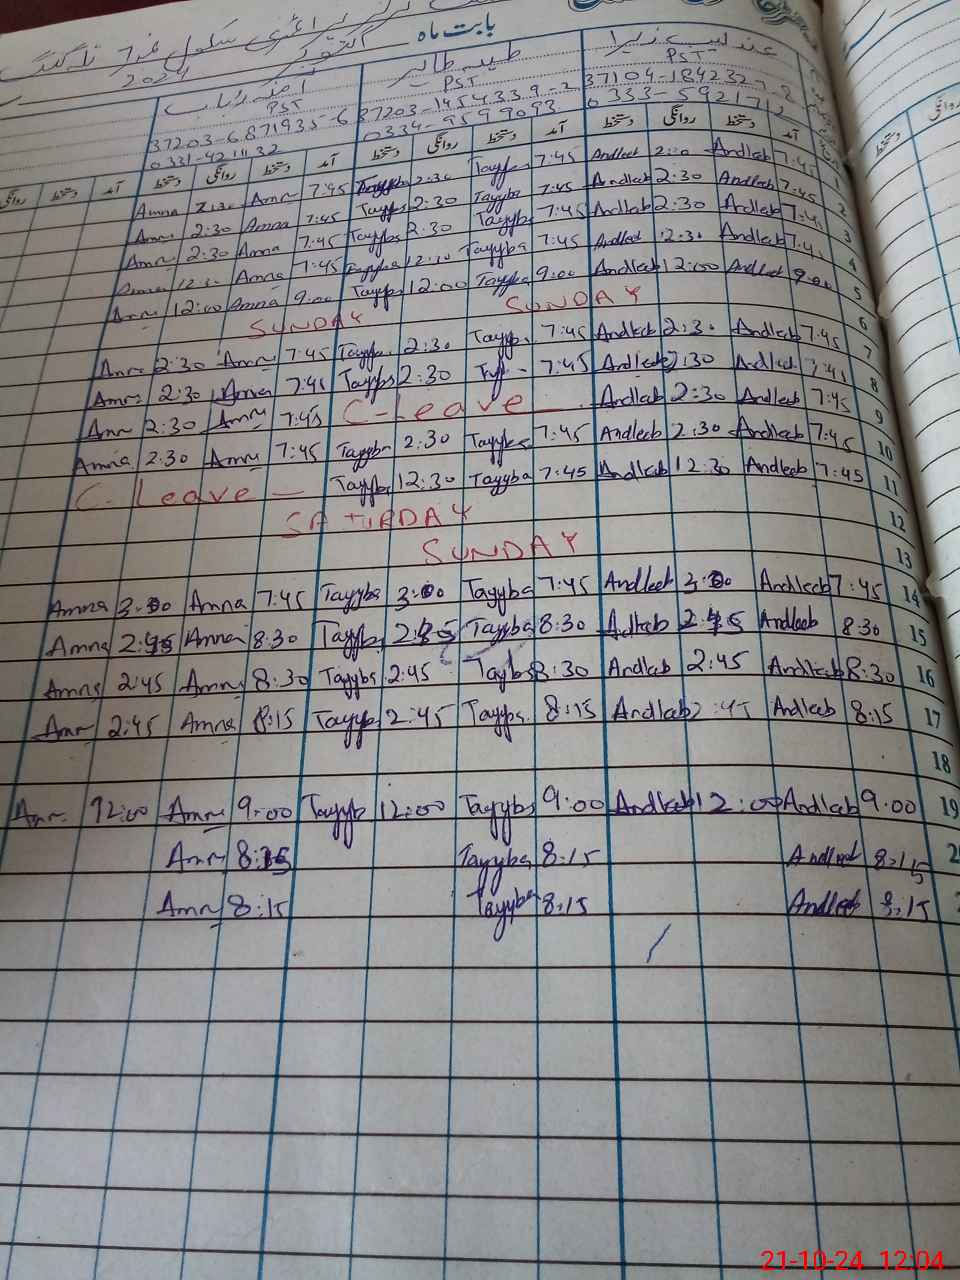 بابت ماہ
اکتوبر 2024
عندلیب زہرا طیبہ طالب آمنہ رباب
PST PST PST
37203-6871935-6
0331-4211132 0334-9599093
آمد دستخط روانگی دستخط آمد دستخط روانگی دستخط آمد دستخط روانگی دستخط آمد دستخط
1 7:45 Andleeb Andleeb 7:45 Tayyba 2:30 Tayyba 7:45 Amna 2:30 Amna
2 7:45 Andleeb 2:30 Andleeb 7:45 Tayyba 2:30 Tayyba 7:45 Amna 2:30 Amna
3 7:45 Andleeb 2:30 Andleeb 7:45 Tayyba 2:30 Tayyba 7:45 Amna 2:30 Amna
4 Andleeb 12:30 Andleeb 7:45 Tayyba Tayyba 7:45 Amna 12:30 Amna
5 9:00 Andleeb 12:00 Andleeb 9:00 Tayyba 12:00 Tayyba 9:00 Amna 12:00 Amna
6 SUNDAY SUNDAY
7 7:45 Andleeb 2:30 Andleeb 7:45 Tayyba 2:30 Tayyba 7:45 Amna 2:30 Amna
8 7:45 Andleeb 2:30 Andleeb 7:45 2:30 Tayyba 7:45 Amna 2:30 Amna
9 7:45 Andleeb 2:30 Andleeb C-Leave 7:45 Amna 2:30 Amna
10 7:45 Andleeb 2:30 Andleeb 7:45 Tayyba 2:30 Tayyba 7:45 Amna 2:30 Amna
11 7:45 Andleeb 12:30 Andleeb 7:45 Tayyba 12:30 Tayyba C Leave
12 SATURDAY
13 SUNDAY
14 7:45 Andleeb 3:00 Andleeb 7:45 Tayyba 3:00 Tayyba 7:45 Amna 3:00 Amna
15 8:30 Andleeb 2:45 Adleeb 8:30 Tayyba 2:45 Tayyba 8:30 Amna 2:45 Amna
16 8:30 Andleeb 2:45 Andleeb 8:30 Tayyba 2:45 Tayyba 8:30 Amna 2:45 Amna
17 8:15 Andleeb 2:45 Andleeb 8:15 Tayyba 2:45 Tayyba 8:15 Amna 2:45 Amna
18
19 9:00 Andleeb 12:00 Andleeb 9:00 Tayyba 12:00 Tayyba 9:00 Amna 12:00 Amna
8:15 Andleeb 8:15 Tayyba 8:15 Amna
8:15 Andleeb 8:15 Tayyba 8:15 Amna
21-10-24 12:04